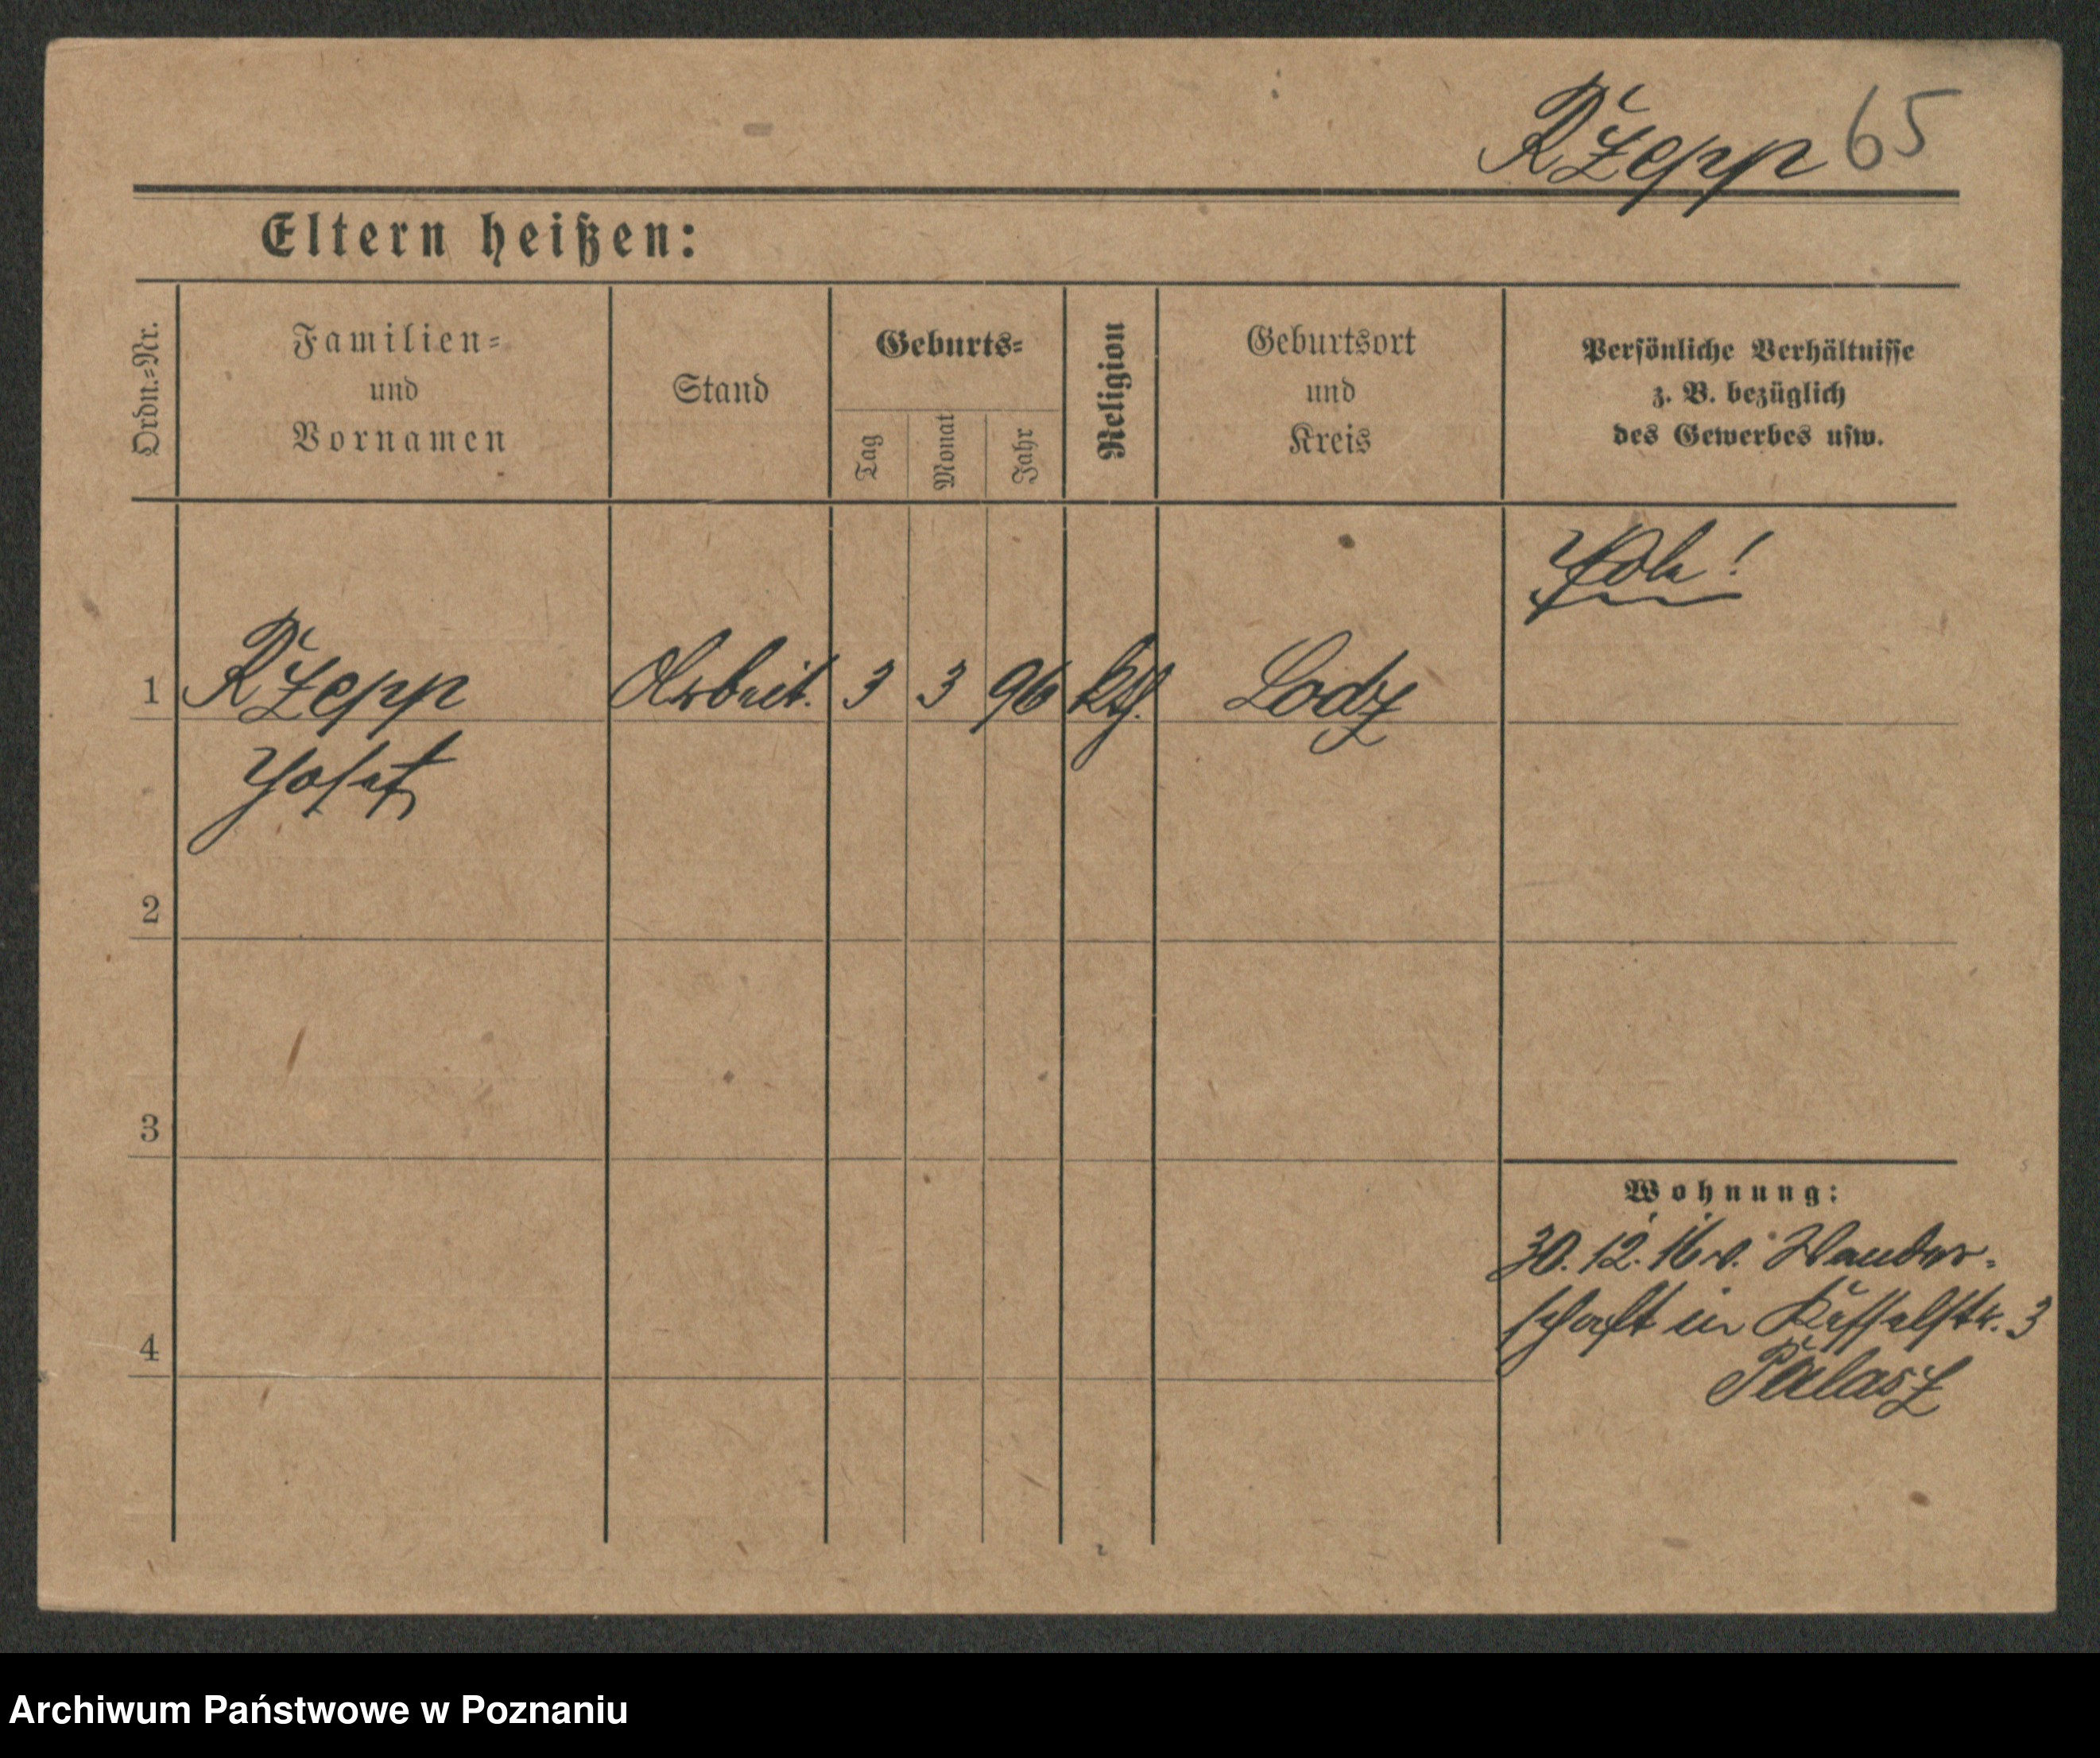 Rzepp 65
Eltern heißen:
Ordn.=Nr.
Familien=
und
Vornamen
Stand
Geburts=
Tag
Monat
Jahr
Religion
Geburtsort
und
Kreis
Persönliche Verhältnisse
z. B. bezüglich
des Gewerbes usw.
1 Rzepp Arbeit. 3 3 96 kth. Lodz
Josef
2
3
4
Wohnung:
30.12.16 v. Wander-
schaft in Kesselstr. 3
Palasz
Archiwum Państwowe w Poznaniu